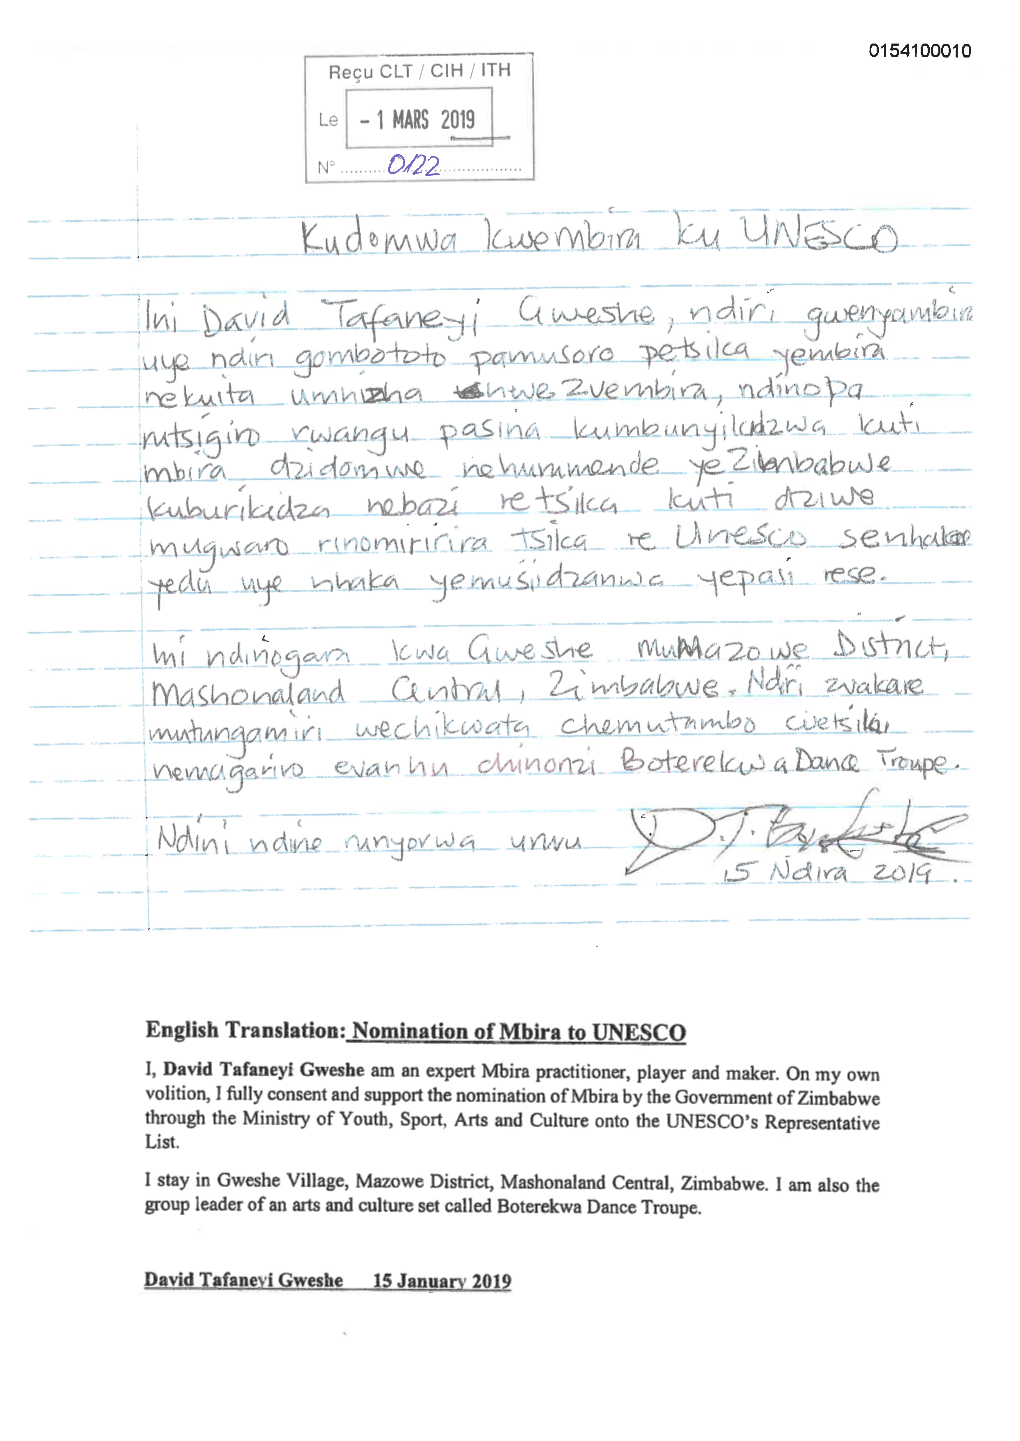 0154100010
Reçu CLT / CIH / ITH
Le - 1 MARS 2019
N° ..........0122....................
Kudomwa kwembira ku UNESCO
Ini David Tafaneyi Gweshe, ndiri gwenyambira
uye ndiri gombototo pamusoro petsika yembira
nekuita umhizha hwe zvembira, ndinopa
rutsigiro rwangu pasina kumbunyikidzwa kuti
mbira dzidomwe nehurumende yeZimbabwe
kuburikidza nebazi retsika kuti dziwe
mugwaro rinomiririra tsika re Unesco senhaka
yedu uye nhaka yemusidzanwa yepasi rese.
Ini ndinogara kwa Gweshe muMazowe District,
Mashonaland Central, Zimbabwe. Ndiri zvakare
mutungamiri wechikwata chemutambo cvetsika
nemagariro evanhu chinonzi Boterekwa Dance Troupe.
Ndini ndine runyorwa urwu
15 Ndira 2019.
English Translation: Nomination of Mbira to UNESCO
I, David Tafaneyi Gweshe am an expert Mbira practitioner, player and maker. On my own
volition, I fully consent and support the nomination of Mbira by the Government of Zimbabwe
through the Ministry of Youth, Sport, Arts and Culture onto the UNESCO's Representative
List.
I stay in Gweshe Village, Mazowe District, Mashonaland Central, Zimbabwe. I am also the
group leader of an arts and culture set called Boterekwa Dance Troupe.
David Tafaneyi Gweshe 15 January 2019